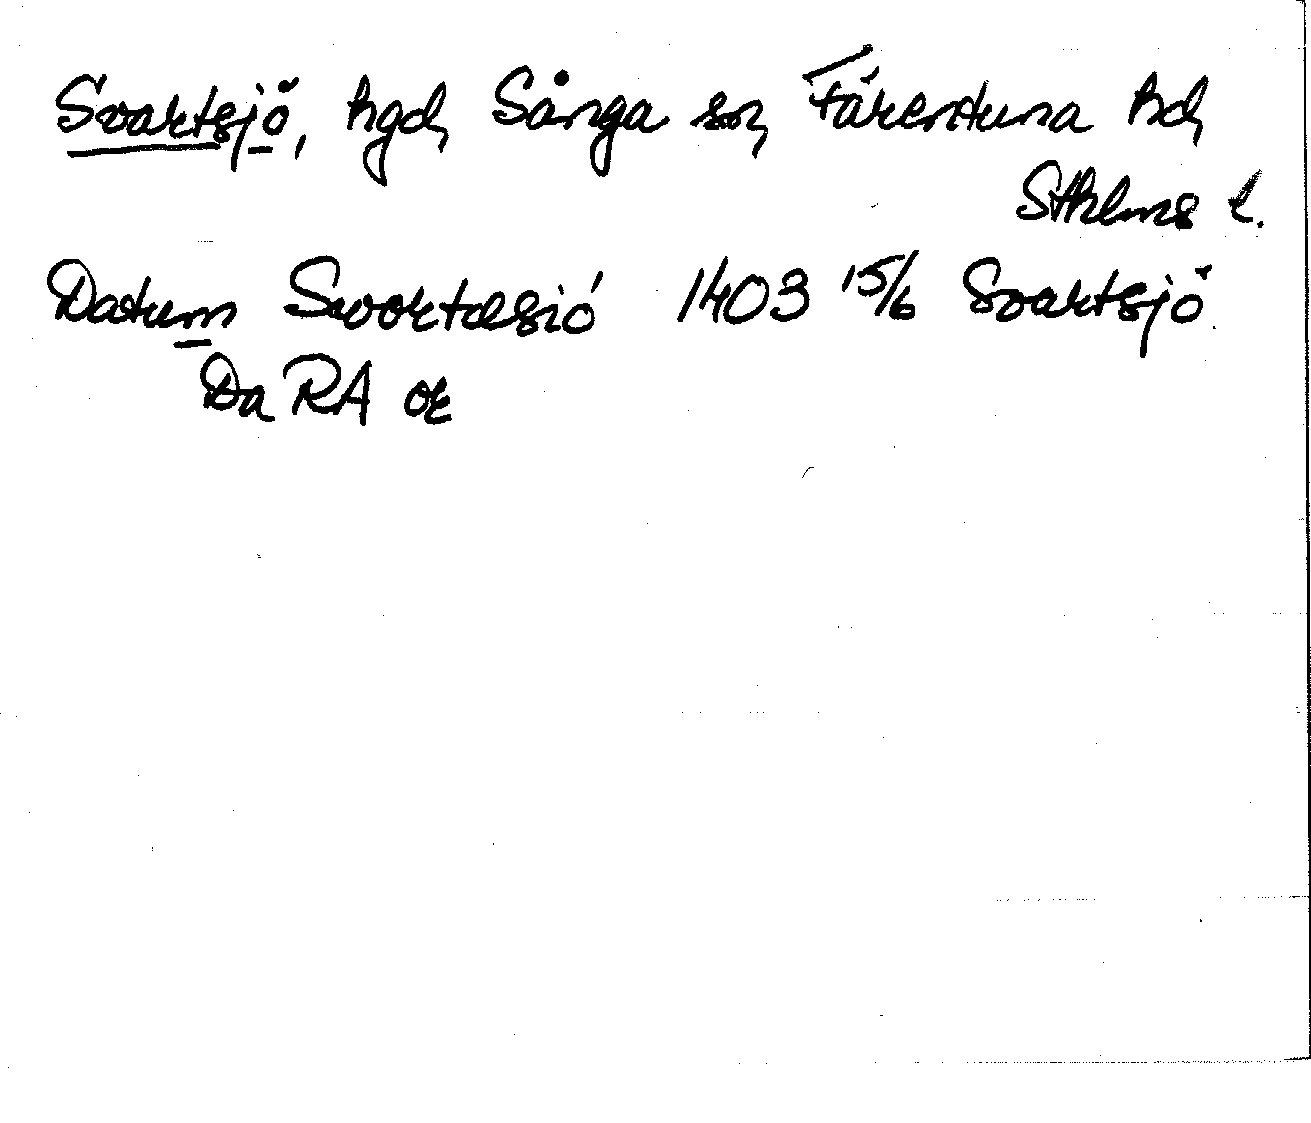 Svartsjö, hgd, Sånga sn, Färentuna hd,
Sthlms l.
Datum Swortæsió 1403 15/6 Svartsjö
Da RA or